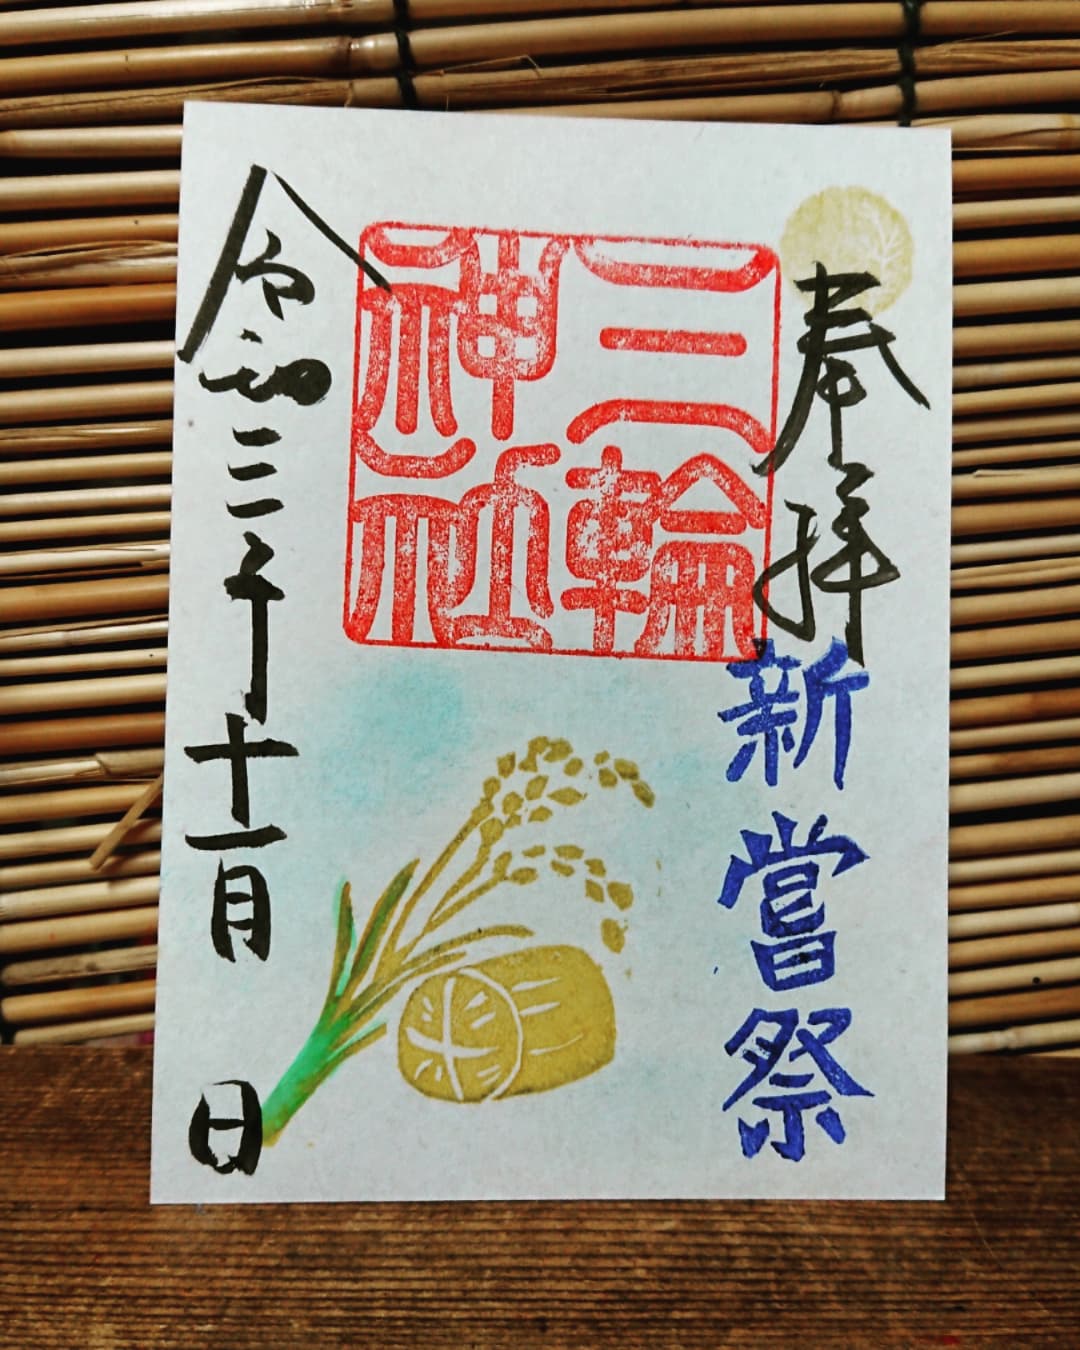 奉拝
新嘗祭
三輪
神社
令和三年十一月 日